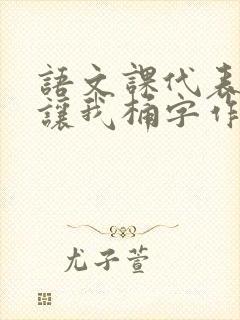 語文課代表
讓我桶字作
尤子萱